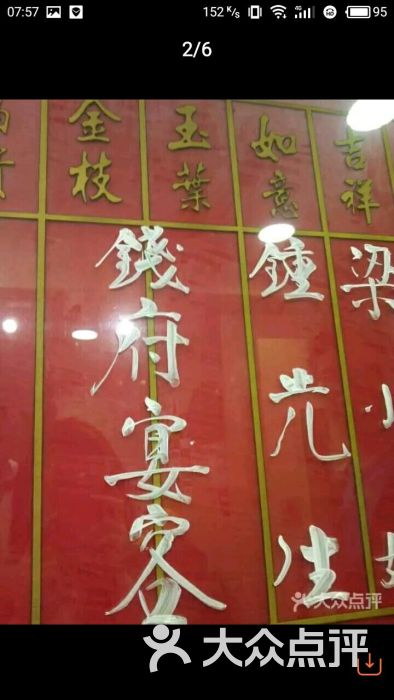 07:57
152 K/s
4G
95
2/6
金枝
玉葉
如意
吉祥
錢府宴客
鍾先生
梁小
大众点评
大众点评